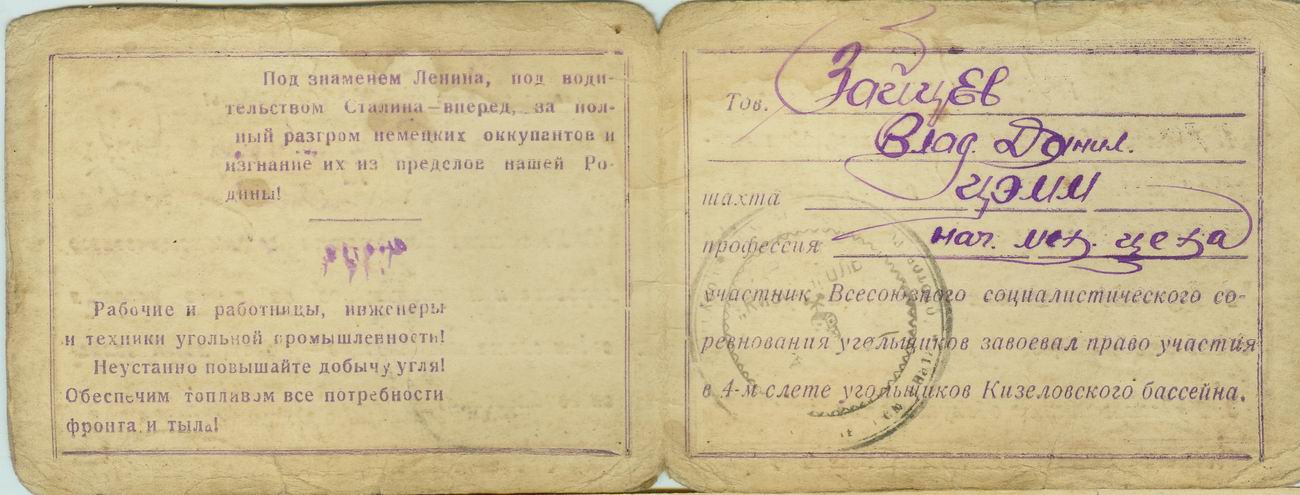 Под знаменем Ленина, под води-
тельством Сталина—вперед, за пол-
ный разгром немецких оккупантов и
изгнание их из пределов нашей Ро-
дины!
Рабочие и работницы, инженеры
и техники угольной промышленности!
Неустанно повышайте добычу угля!
Обеспечим топливом все потребности
фронта и тыла!
Тов. Зайцев
Влад. Данил.
шахта ЦЭММ
профессия нач. мех. цеха
участник Всесоюзного социалистического со-
ревнования угельщиков завоевал право участия
в 4-м слете угольщиков Кизеловского бассейна.